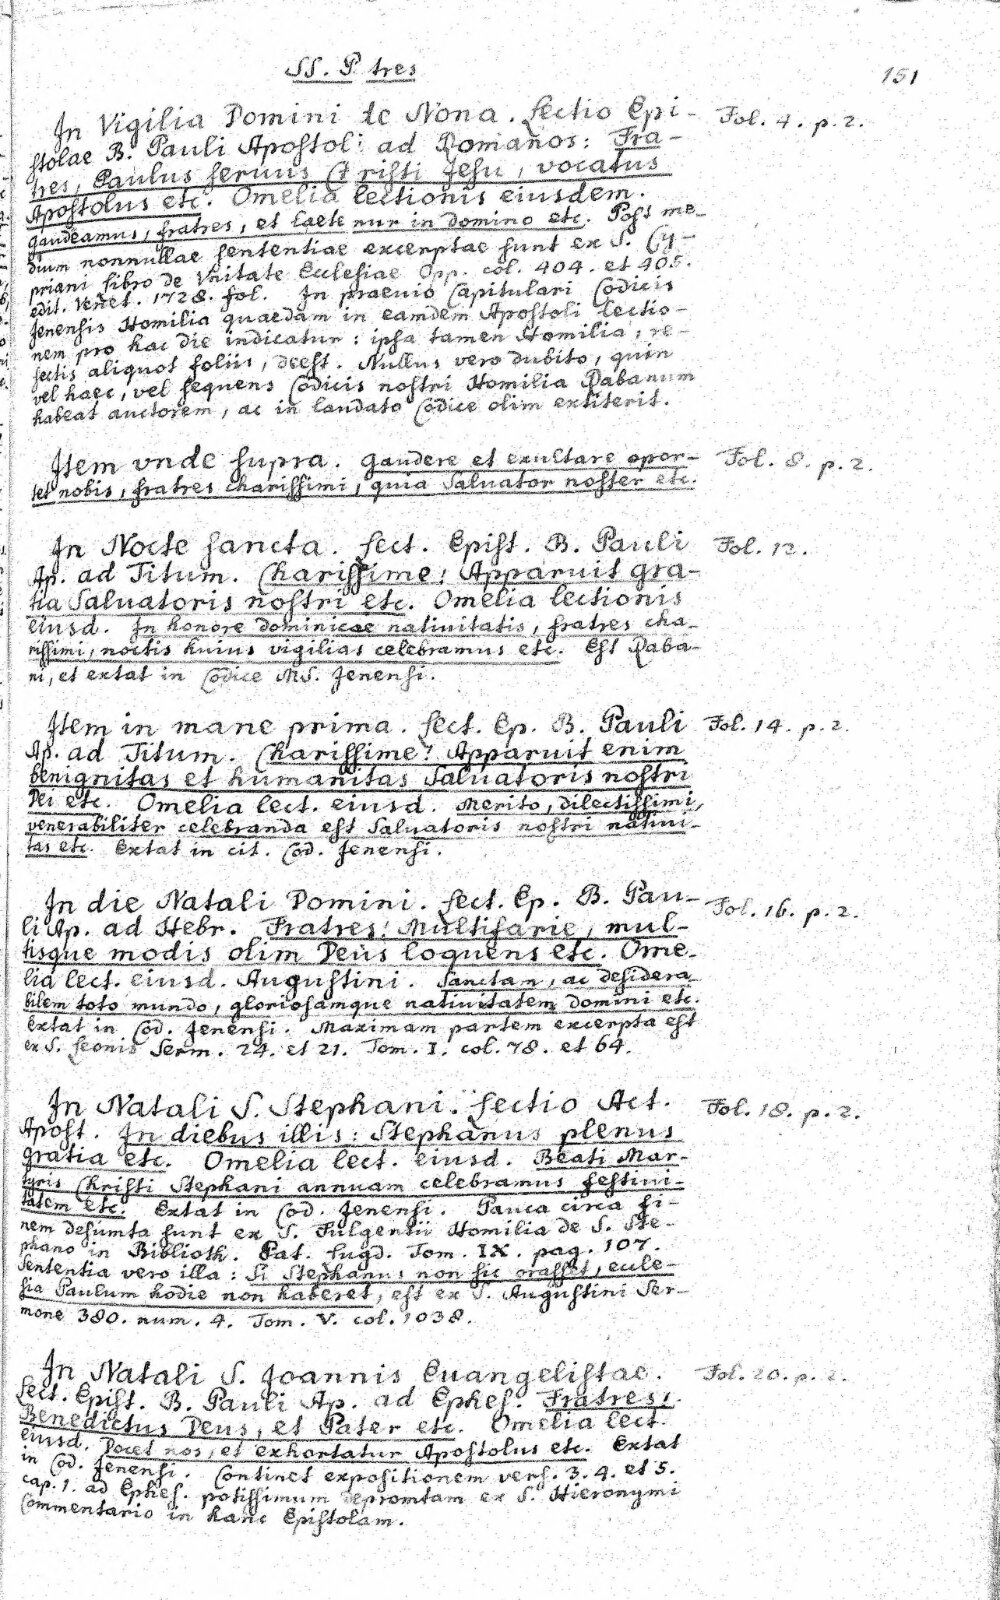 SS. P tres
151
In Vigilia Domini de Nona. Lectio Epi- Fol. 4. p. 2.
stolae B. Pauli Apostol: ad Romanos: Fra-
tres, Paulus seruus Christi Jesu, vocatus
Apostolus etc. Omelia lectionis eiusdem.
gaudeamus, fratres, et laete nur in domino etc. Post me-
dium nonnullae sententiae excerptae sunt ex S. Cy-
priani libro de Vnitate Ecclesiae Opp. col. 404. et 405.
edit. Venet. 1728. fol. In praeuio Capitulari Codicis
Jenensis Homilia quaedam in eamdem Apostoli lectio-
nem pro hac die indicatur: ipsa tamen Homilia, re-
sectis aliquot foliis, deest. Nullus vero dubito, quin
vel haec, vel sequens Codicis nostri Homilia Rabanum
habeat auctorem, ac in laudato Codice olim extiterit.
Item vnde supra. gaudere et exultare opor- Fol. 8. p. 2.
tet nobis, fratres charissimi, quia Saluator noster etc.
In Nocte sancta. Lect. Epist. B. Pauli Fol. 12.
Ap. ad Titum. Charissime: Apparuit gra-
tia Saluatoris nostri etc. Omelia lectionis
eiusd. In honore dominicae natiuitatis, fratres cha-
rissimi, noctis huius vigilias celebramus etc. Est Raba-
ni, et extat in Codice MS. Jenensi.
Item in mane prima. Lect. Ep. B. Pauli Fol. 14. p. 2.
Ap. ad Titum. Charissime: Apparuit enim
benignitas et humanitas Saluatoris nostri
Dei etc. Omelia lect. eiusd. Merito, dilectissimi,
venerabiliter celebranda est Saluatoris nostri natiui-
tas etc. Extat in cit. Cod. Jenensi.
In die Natali Domini. Lect. Ep. B. Pau- Fol. 16. p. 2.
li Ap. ad Hebr. Fratres: Multifarie, mul-
tisque modis olim Deus loquens etc. Ome-
lia lect. eiusd. Augustini. Sanctam, ac desidera
bilem toto mundo, gloriosamque natiuitatem domini etc.
Extat in Cod. Jenensi. Maximam partem excerpta est
ex S. Leonis Serm. 24. et 21. Tom. I. col. 78. et 64.
In Natali S. Stephani. Lectio Act. Fol. 18. p. 2.
Apost. In diebus illis: Stephanus plenus
gratia etc. Omelia lect. eiusd. Beati Mar-
tyris Christi Stephani annuam celebramus festiui-
tatem etc. Extat in Cod. Jenensi. Pauca circa fi-
nem desumta sunt ex S. Fulgentii Homilia de S. Ste-
phano in Biblioth. Pat. Lugd. Tom. IX. pag. 107.
Sententia vero illa: Si Stephanus non sic orasset, eccle-
sia Paulum hodie non haberet, est ex S. Augustini Ser-
mone 380. num. 4. Tom. V. col. 1038.
In Natali S. Joannis Euangelistae. Fol. 20. p. 2.
Lect. Epist. B. Pauli Ap. ad Ephes. Fratres:
Benedictus Deus, et Pater etc. Omelia lect.
eiusd. Docet nos, et exhortatur Apostolus etc. Extat
in Cod. Jenensi. Continet expositionem vers. 3. 4. et 5.
cap. 1. ad Ephes. potissimum depromtam ex S. Hieronymi
Commentario in hanc Epistolam.